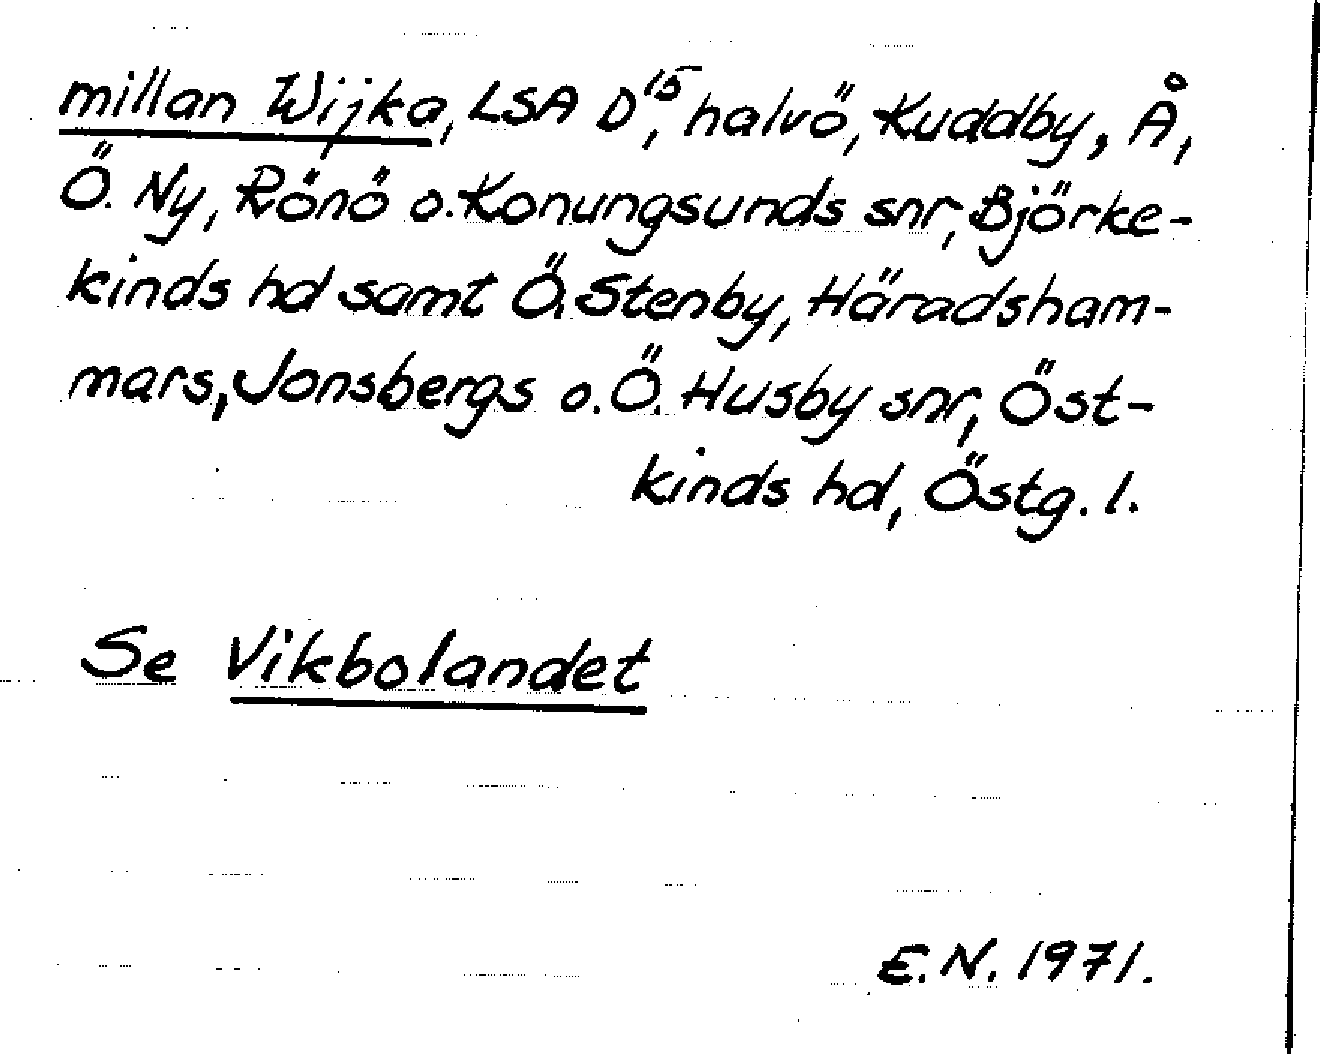 millan Wijka, LSA D15, halvö, Kuddby, Å,
Ö. Ny, Rönö o. Konungsunds snr, Björke-
kinds hd samt Ö. Stenby, Häradsham-
mars, Jonsbergs o. Ö. Husby snr, Öst-
kinds hd, Östg. l.
Se Vikbolandet
E.N. 1971.